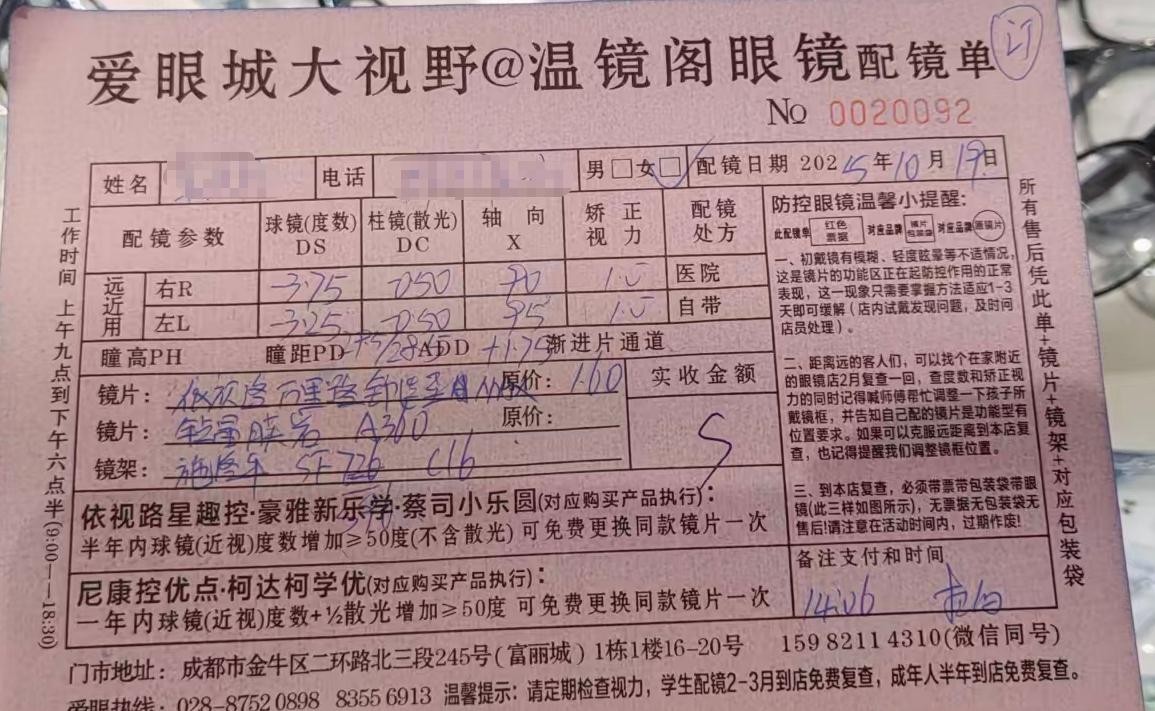 订
爱眼城大视野@温镜阁眼镜配镜单
№ 0020092
姓名 电话 男□女□ 配镜日期 2025年10月19日
配镜参数 球镜(度数)DS 柱镜(散光)DC 轴向X 矫正视力 配镜处方
远近用 右R -3.75 -0.50 90 1.0 医院
左L -3.25 -0.50 95 1.0 自带
瞳高PH 瞳距PD ADD +1.75 渐进片通道
镜片: 依视路万里路 原价: 1.60 实收金额
镜片: A360 原价:
镜架: 施洛华 SF726 C16
依视路星趣控·豪雅新乐学·蔡司小乐圆(对应购买产品执行):
半年内球镜(近视)度数增加≥50度(不含散光)可免费更换同款镜片一次
尼康控优点·柯达柯学优(对应购买产品执行):
一年内球镜(近视)度数+½散光增加≥50度 可免费更换同款镜片一次
防控眼镜温馨小提醒:
此配镜单 红色票据 对应品牌 镜片包装袋 对应品牌
一、初戴镜有模糊、轻度眩晕等不适情况,
这是镜片的功能区正在起防控作用的正常
表现,这一现象只需要掌握方法适应1-3
天即可缓解(店内试戴发现问题,及时问
店员处理)。
二、距离远的客人们,可以找个在家附近
的眼镜店2月复查一回,查度数和矫正视
力的同时记得喊师傅帮忙调整一下孩子所
戴镜框,并告知自己配的镜片是功能型有
位置要求。如果可以克服远距离到本店复
查,也记得提醒我们调整镜框位置。
三、到本店复查,必须带票带包装袋带眼
镜(此三样如图所示),无票据无包装袋无
售后!请注意在活动时间内,过期作废!
备注支付和时间
14:06
工作时间 上午九点到下午六点半(9:00—18:30)
所有售后凭此单+镜片+镜架+对应包装袋
门市地址: 成都市金牛区二环路北三段245号(富丽城)1栋1楼16-20号 15982114310(微信同号)
爱眼热线: 028-87520898 83556913 温馨提示: 请定期检查视力,学生配镜2-3月到店免费复查,成年人半年到店免费复查。